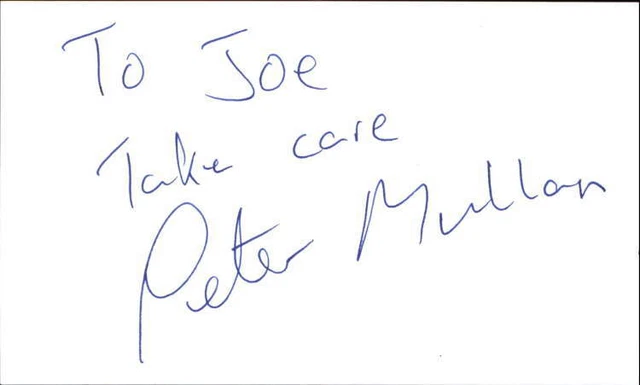 To Joe
Take care
Peter Mullan